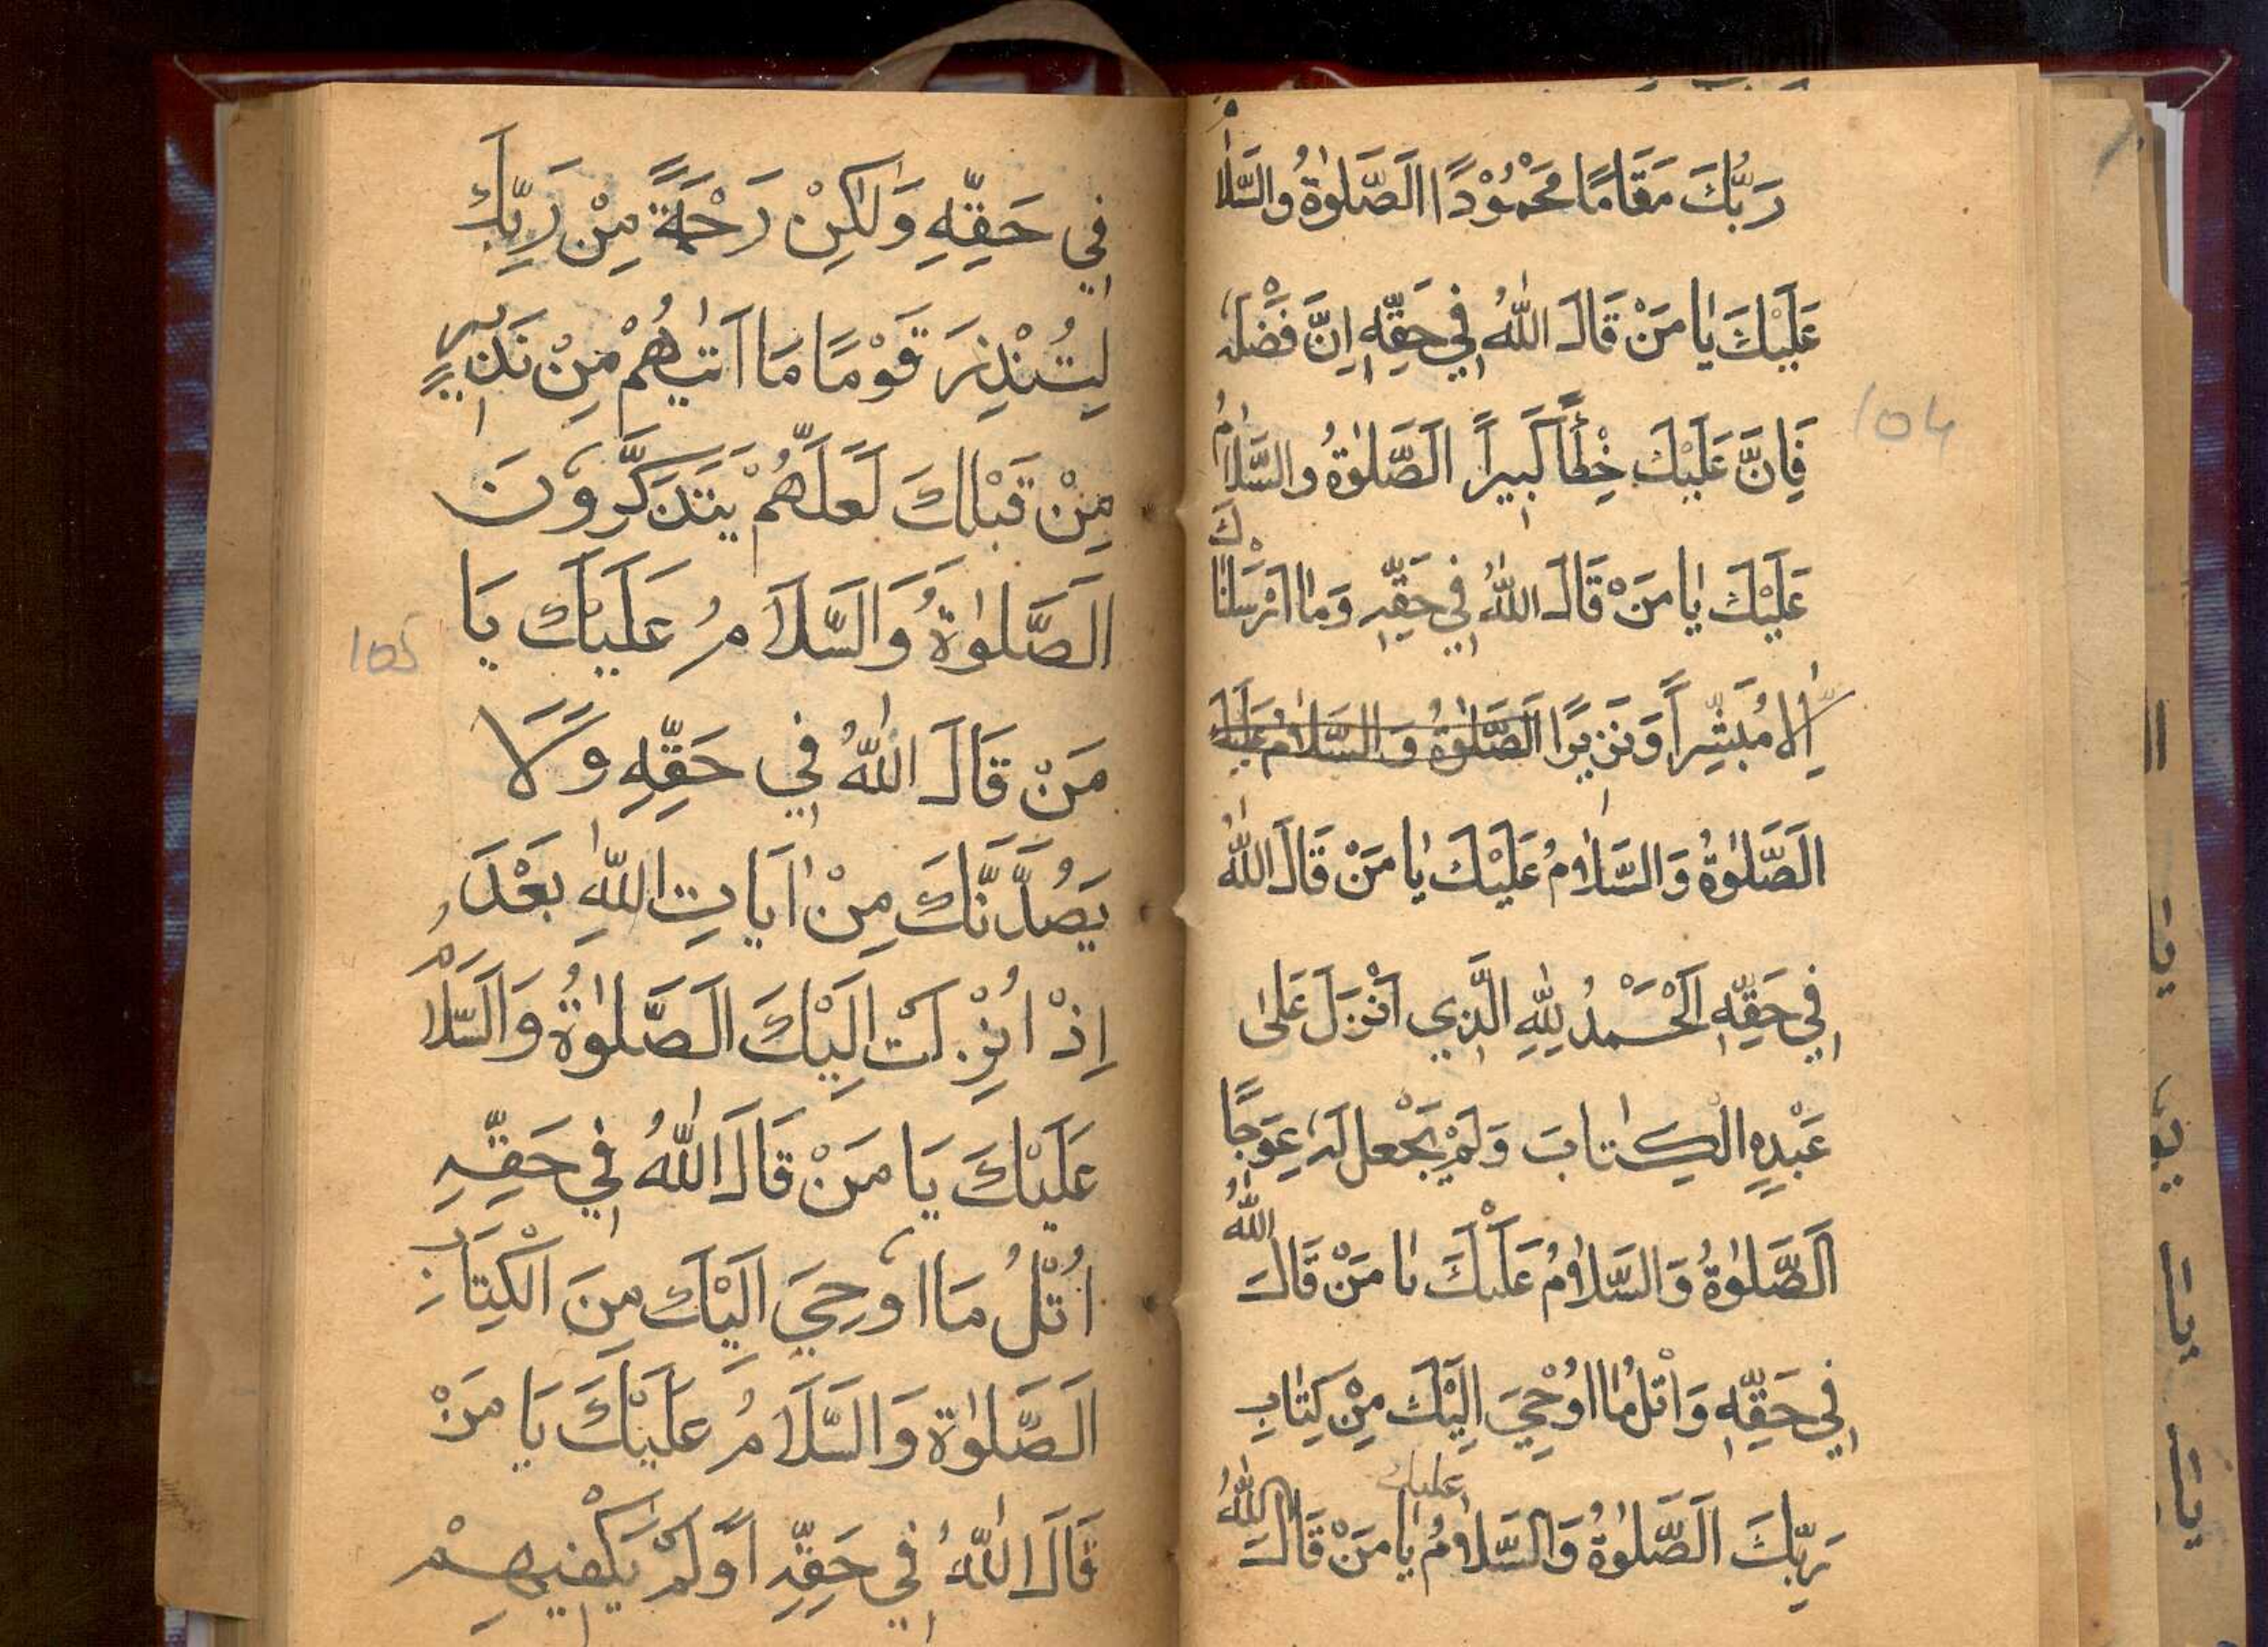 رَبُّكَ مَقَامًا مَحْمُوْدًا اَلصَّلٰوةُ والسَّلاٰمُ
عَلَيْكَ يٰا مَنْ قَالَ اللّٰهُ فِي حَقِّهِ اِنَّ فَضْلَهُ
فَاِنَّ عَلَيْكَ خِطْأً كَبِيراً اَلصَّلٰوةُ والسَّلاٰمُ
عَلَيْكَ يٰا مَنْ قَالَ اللّٰهُ فِي حَقِّهِ وَمٰا اَرْسَلْنَاكَ
اِلاّٰ مُبَشِّراً وَنَذِيرًا اَلصَّلٰوةُ وَالسَّلاٰمُ عَلَيْكَ
اَلصَّلٰوةُ وَالسَّلاٰمُ عَلَيْكَ يٰا مَنْ قَالَ اللّٰهُ
فِي حَقِّهِ اَلْحَمْدُ لِلّٰهِ الَّذِي اَنْزَلَ عَلىٰ
عَبْدِهِ الْكِتٰابَ وَلَمْ يَجْعَل لَهُ عِوَجًا
اَلصَّلٰوةُ وَالسَّلاٰمُ عَلَيْكَ يٰا مَنْ قَالَ اللّٰهُ
فِي حَقِّهِ وَاتْلُ مٰا اُوْحِيَ اِلَيْكَ مِنْ كِتٰابِ
رَبِّكَ اَلصَّلٰوةُ وَالسَّلاٰمُ عليك يٰا مَنْ قَالَ اللّٰهُ
104
فِي حَقِّهِ وَلٰكِنْ رَحْمَةً مِنْ رَبِّكَ
لِتُنْذِرَ قَوْمًا مَا اَتٰيهُمْ مِنْ نَذِيرٍ
مِنْ قَبْلِكَ لَعَلَّهُمْ يَتَذَكَّرُونَ
اَلصَّلٰوةُ وَالسَّلاَمُ عَلَيْكَ يَا
مَنْ قَالَ اللّٰهُ فِي حَقِّهِ وَلَا
يَصُدَّنَّكَ مِنْ اٰيَاتِ اللّٰهِ بَعْدَ
اِذْ اُنْزِلَتْ اِلَيْكَ اَلصَّلٰوةُ وَالسَّلاَمُ
عَلَيْكَ يَا مَنْ قَالَ اللّٰهُ فِي حَقِّهِ
اُتْلُ مَا اُوحِيَ اِلَيْكَ مِنَ الْكِتَابِ
اَلصَّلٰوةُ وَالسَّلَامُ عَلَيْكَ يَا مَنْ
قَالَ اللّٰهُ فِي حَقِّهِ اَوَلَمْ يَكْفِيهِمْ
105